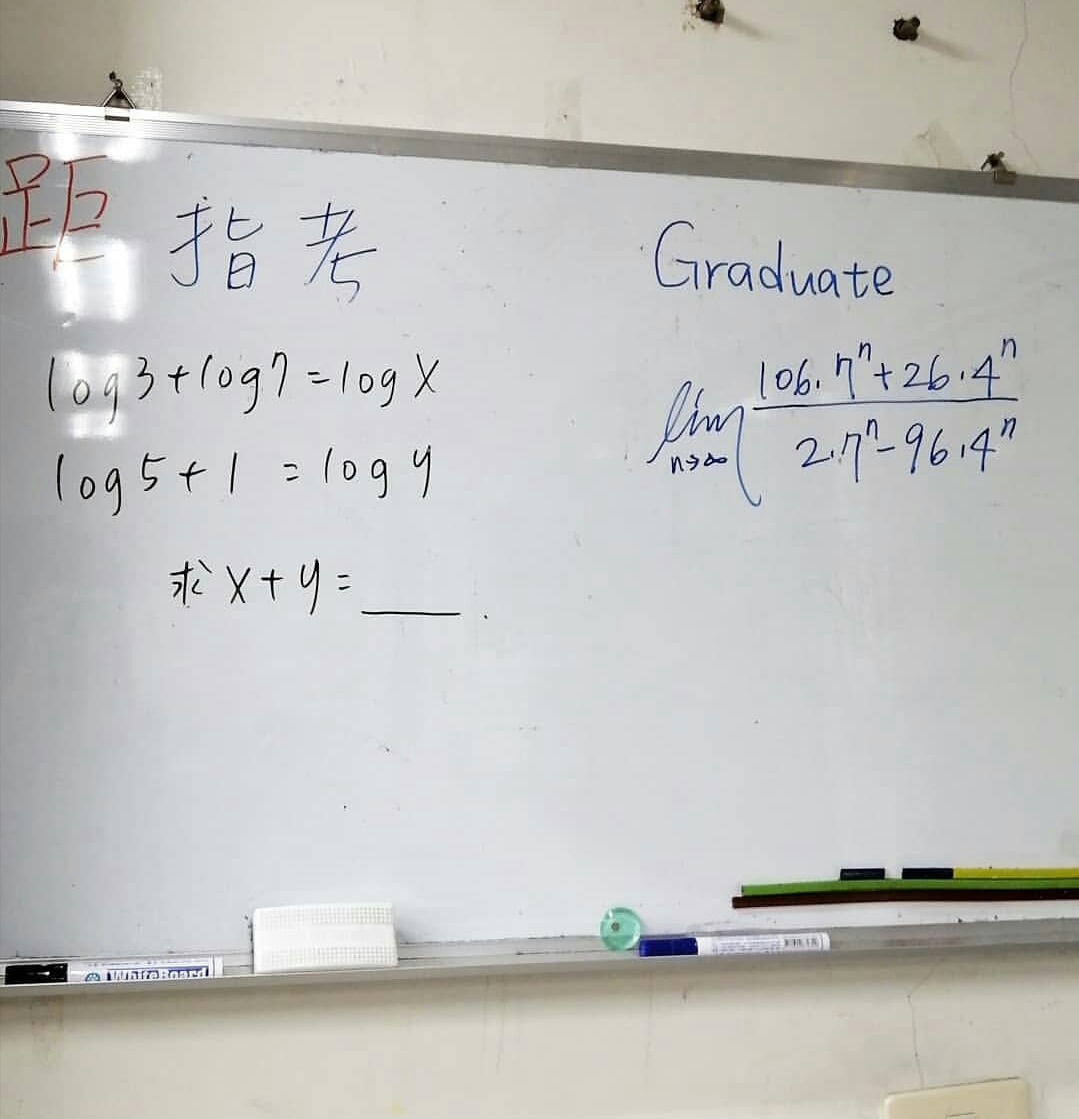 距 指考
log3+log7=logx
log5+1=logy
求x+y=___.
Graduate
lim n→∞ (106.7ⁿ+26.4ⁿ)/(2.7ⁿ-96.4ⁿ)
WhiteBoard